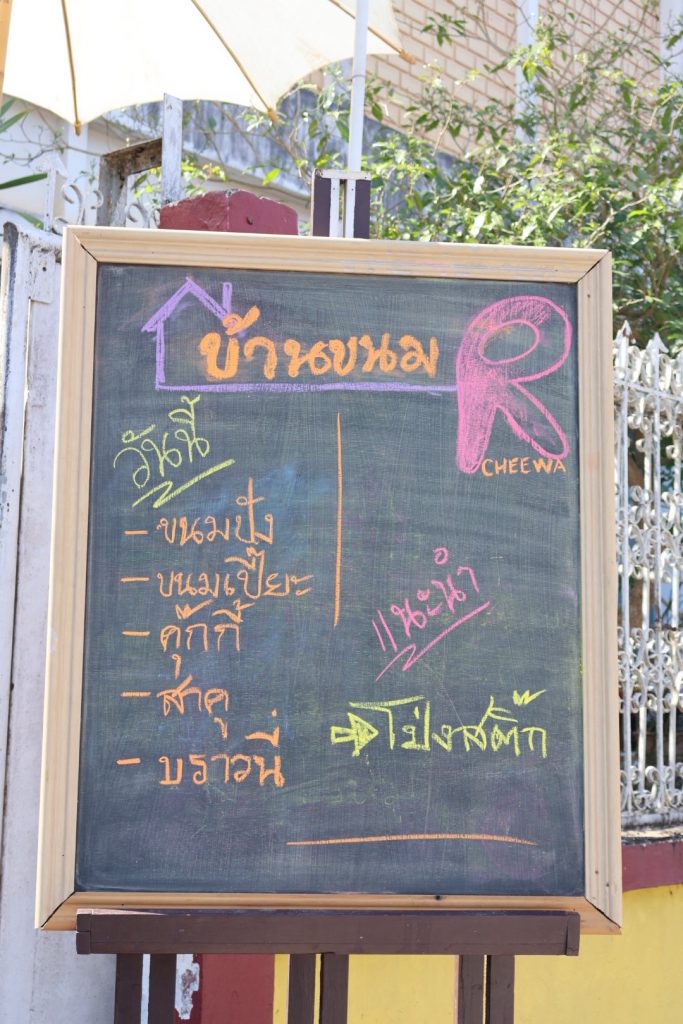 บ้านขนม
R
CHEEWA
วันนี้
- ขนมปัง
- ขนมเปี๊ยะ
- คุ๊กกี้
- สาคู
- บราวนี่
แนะนำ
โป่งสติ๊ก